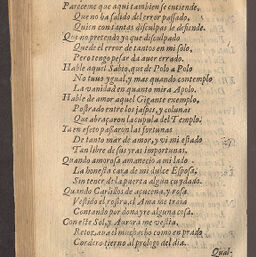 Pareceme que aqui tambien se entiende,
Que no ha faltado del error passado,
Quien con tantas disculpas le defiende.
Que no pretendo yo que disculpado
Quede el error de tantos en mi solo,
Pero tengo pesar de auer errado.
Hable aquel Sabio, que de Polo a Polo
No tuuo ygual, y mas quando contemplo
La vanidad en quanto mira Apolo.
Hable de amor aquel Gigante exemplo,
Postrado entre los jaspes, y colunas
Que abraçaron la cupula del Templo.
Ya en efeto passaron las fortunas
De tanto mar de amor, y vi mi estado
Tan libre de sus yras importunas,
Quando amorosa amanecio a mi lado
La honesta cara de mi dulce Esposa,
Sin tener de la puerta algun cuydado.
Quando Carlillos de açucena, y rosa
Vestido el rostro, el alma me traia
Contando por donayre alguna cosa.
Con este Sol, y Aurora me vestia,
Retoçaua el muchacho como en prado
Cordero tierno al prologo del dia.
Qual-